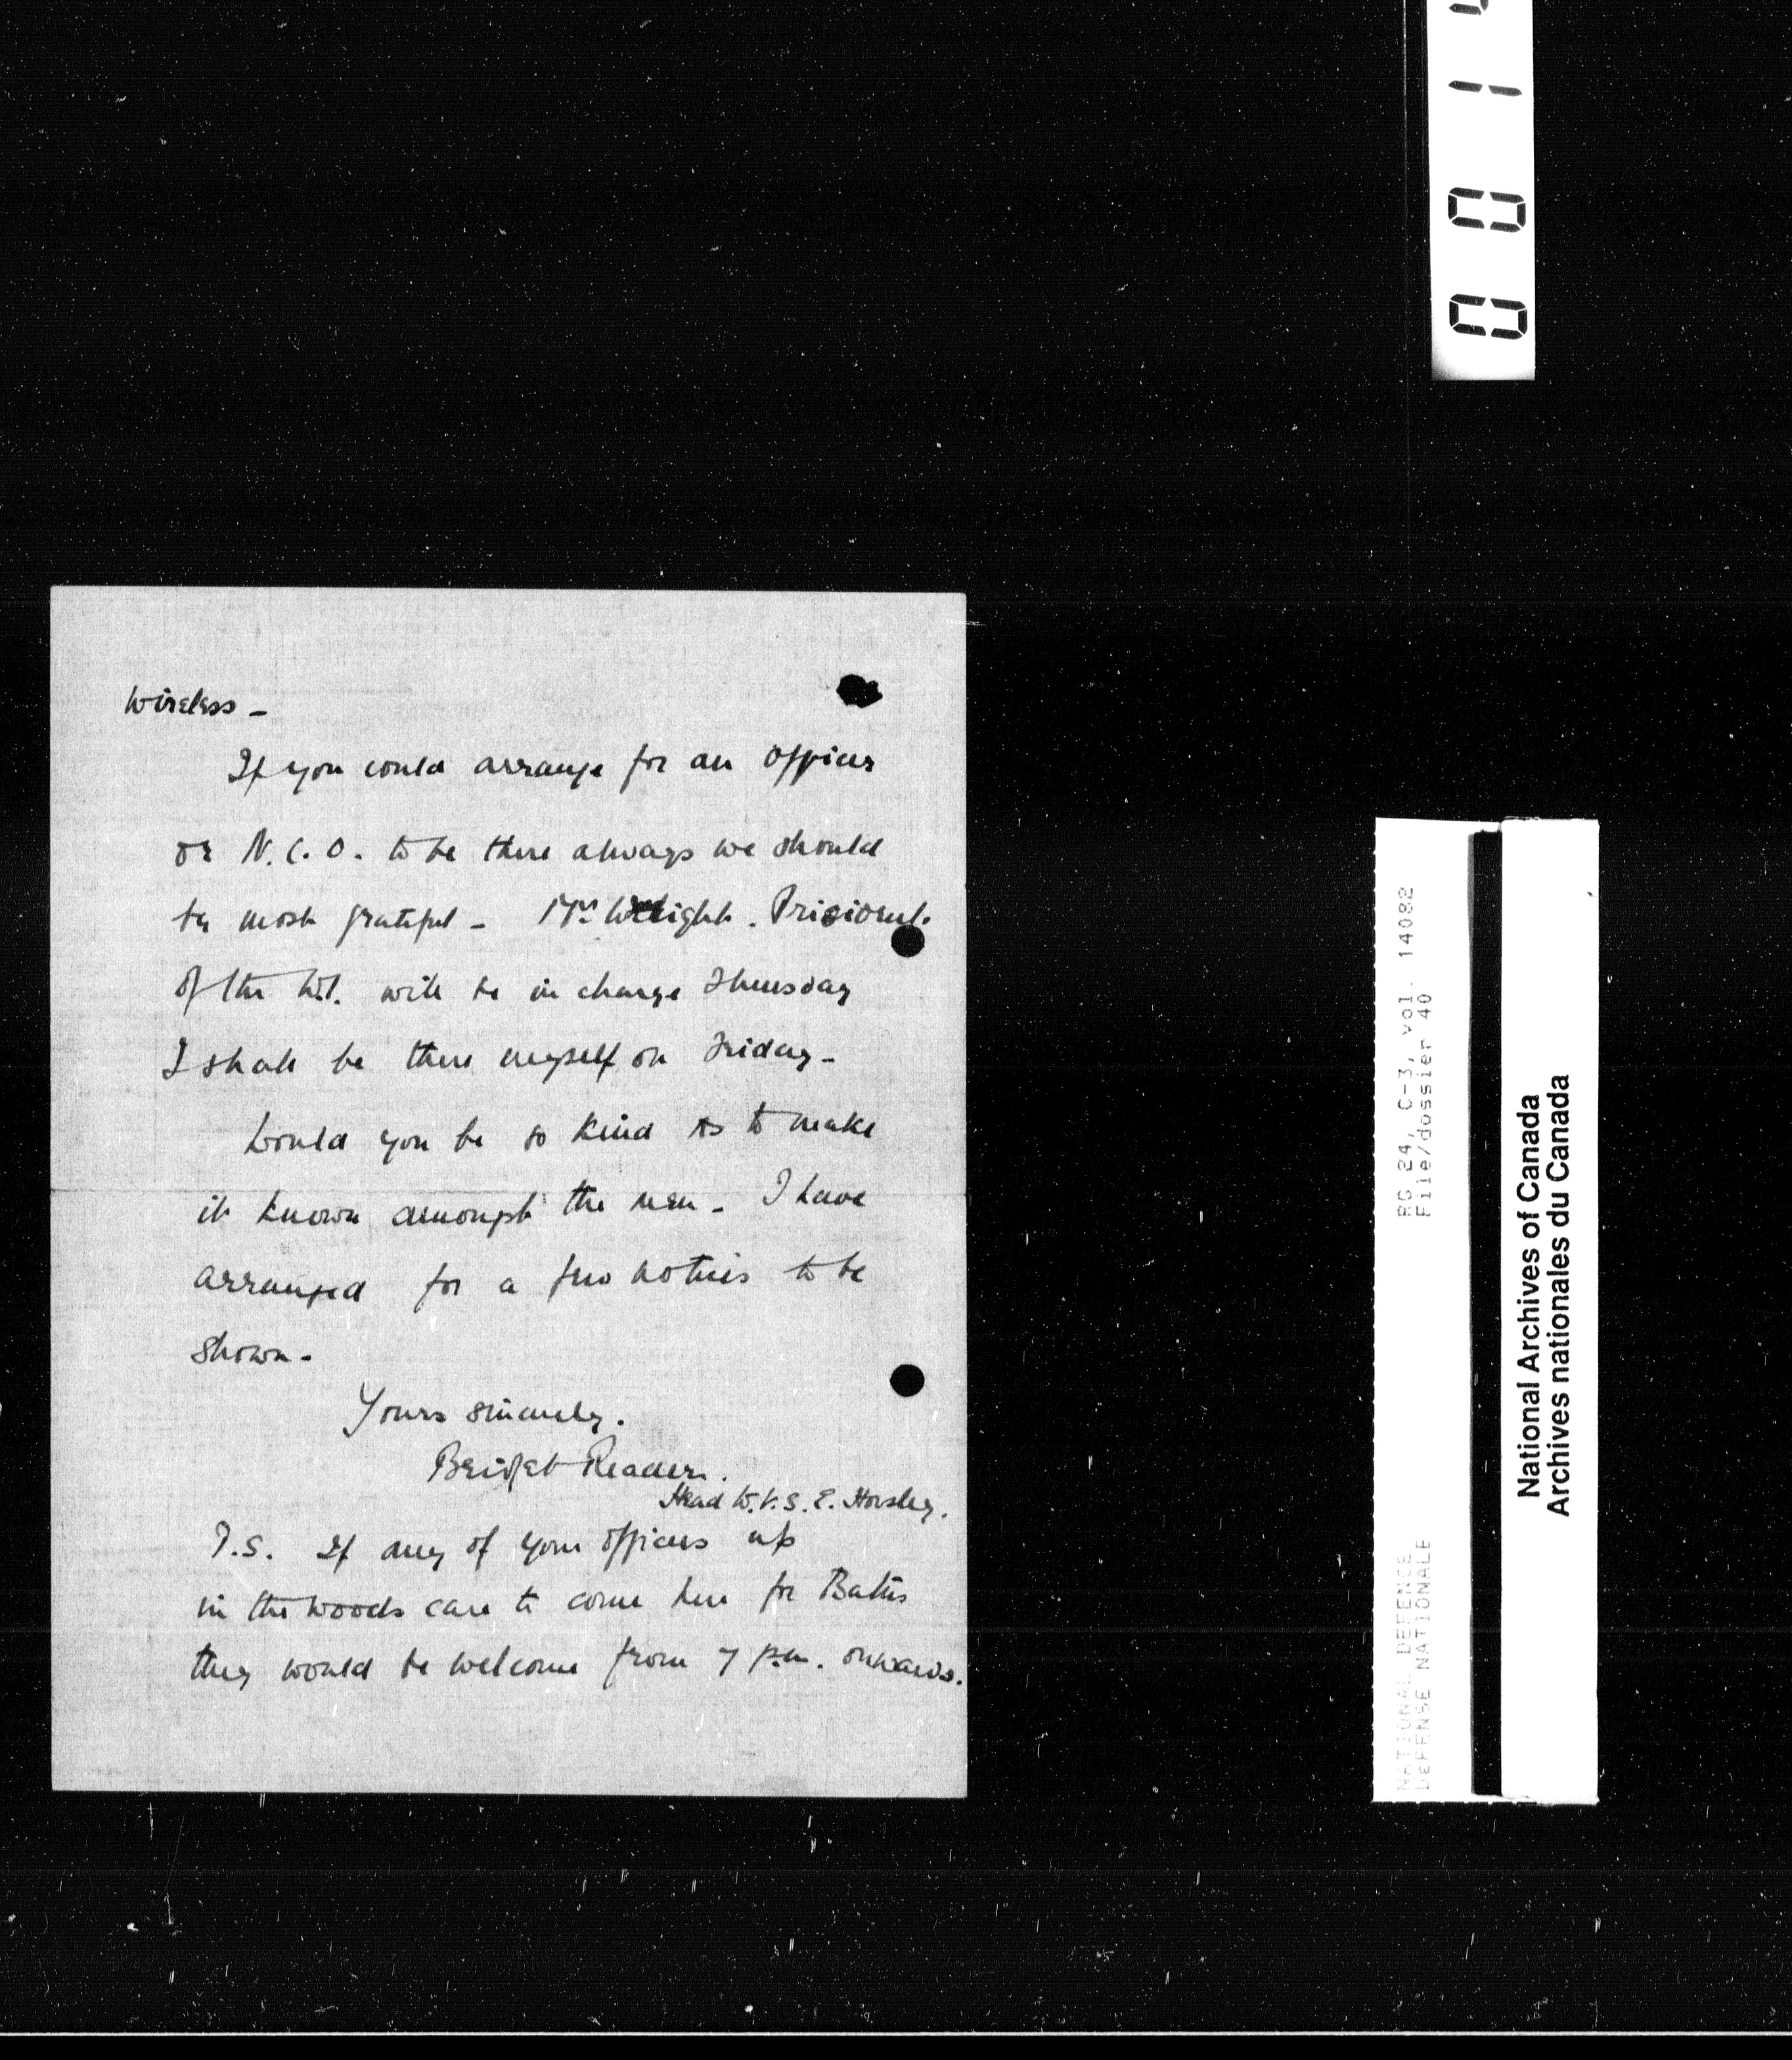 Wireless -
If you could arrange for an Officer
or N.C.O. to be there always we should
be most grateful - Mrs Wright. President.
of the W.I. will be in charge Thursday
I shall be there myself on Friday -
Would you be so kind as to make
it known amongst the men - I have
arranged for a few notices to be
shown -
Yours sincerely.
Bridget Reader.
Head W.V.S. E. Horsley.
P.S. If any of your officers up
in the woods care to come here for Baths
they would be welcome from 7 p.m. onwards.
0 0 1
RG 24, C-3, vol. 14082
File/dossier 40
NATIONAL DEFENCE
DEFENSE NATIONALE
National Archives of Canada
Archives nationales du Canada